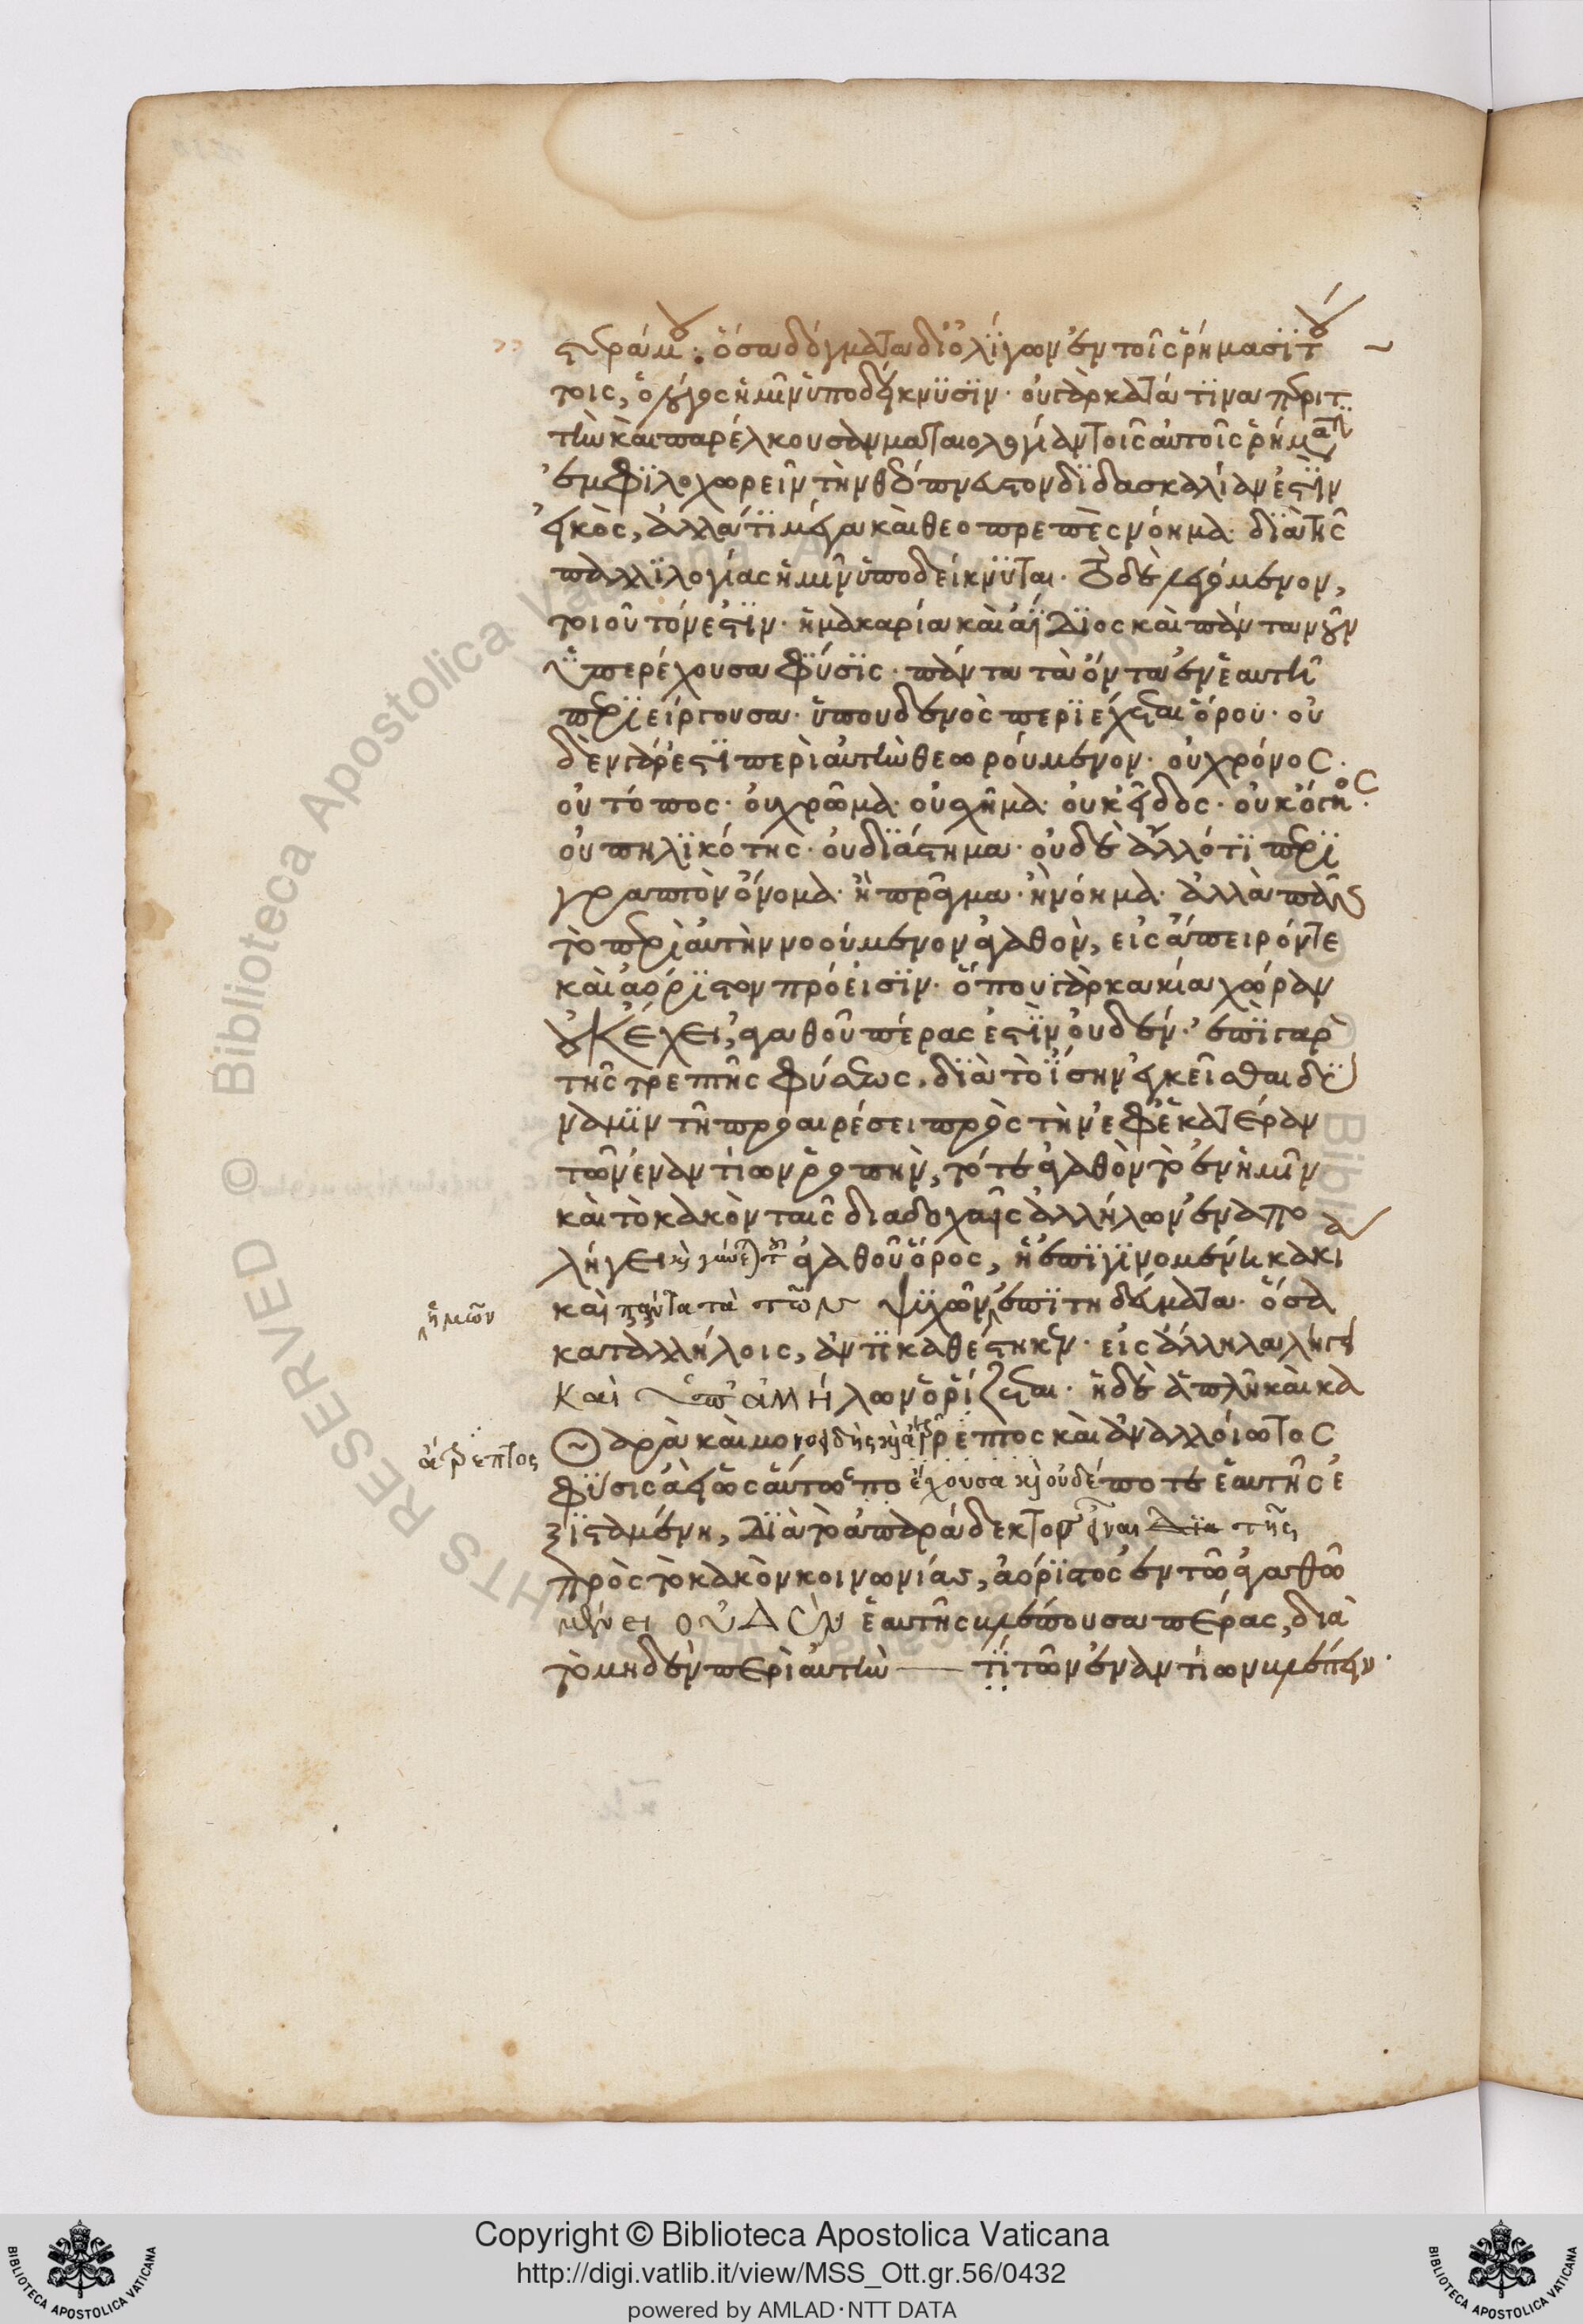 σνράμου· ὅσα δόγματα δι' ὀλίγων ἐν τοῖς ῥήμασι τού
τοις, ὁ λόγος ἡμῖν ὑποδείκνυσιν· οὐ γὰρ κατά τινα περιτ
τὴν καὶ παρέλκουσαν ματαιολογίαν τοῖς αὐτοῖς ῥήμασιν
ἐμφιλοχωρεῖν τὴν θεόπνευστον διδασκαλίαν ἐστὶν
εἰκὸς, ἀλλά τι μέγα καὶ θεοπρεπὲς νόημα διὰ τῆς
παλλιλογίας ἡμῖν ὑποδείκνυται· τὸ δὲ λεγόμενον,
τοιοῦτόν ἐστιν· ἡ μακαρία καὶ ἀΐδιος καὶ πάντα νοῦν
ὑπερέχουσα φύσις· πάντα τὰ ὄντα ἐν ἑαυτῇ
περιείργουσα· ὑπ' οὐδενὸς περιέχεται ὅρου· οὐ
δὲν γάρ ἐστι περὶ αὐτὴν θεωρούμενον· οὐ χρόνος·
οὐ τόπος· οὐ χρῶμα· οὐ σχῆμα· οὐκ εἶδος· οὐκ ὄγκος·
οὐ πηλικότης· οὐ διάστημα· οὐδὲ ἄλλό τι περι
γραπτὸν ὄνομα· ἢ πρᾶγμα· ἢ νόημα· ἀλλὰ πᾶν
τὸ περὶ αὐτὴν νοούμενον ἀγαθὸν, εἰς ἄπειρόν τε
καὶ ἀόριστον πρόεισιν· ὅπου γὰρ κακία χώραν
οὐκ ἔχει, ἀγαθοῦ πέρας ἐστὶν οὐδέν· ἐπὶ γὰρ
τῆς τρεπτῆς φύσεως, διὰ τὸ ἴσην ἐγκεῖσθαι δύ
ναμιν τῇ προαιρέσει πρὸς τὴν ἐφ' ἑκατέραν
τῶν ἐναντίων ῥοπὴν, τό τε ἀγαθὸν τὸ ἐν ἡμῖν
καὶ τὸ κακὸν ταῖς διαδοχαῖς ἀλλήλων ἐναπο
λήγει καὶ γίνεται τοῦ ἀγαθοῦ ὅρος, ἡ ἐπιγινομένη κακία
καὶ πάντα τὰ τῶν ψυχῶν ἐπιτηδεύματα· ὅσα
ἡμῶν
καταλλήλοις, ἀντικαθέστηκεν· εἰς ἄλληλα λήγει
καὶ ὑπ' ἀλλήλων ὁρίζεται· ἡ δὲ ἁπλῆ καὶ κα
θαρὰ καὶ μονοειδὴς καὶ ἄτρεπτος καὶ ἀναλλοίωτος
ἄτρεπτος
φύσις ἀεὶ ὡσαύτως ἔχουσα καὶ οὐδέποτε ἑαυτῆς ἐ
ξισταμένη, διὰ τὸ ἀπαράδεκτον εἶναι διὰ τῆς
πρὸς τὸ κακὸν κοινωνίας, ἀόριστος ἐν τῷ ἀγαθῷ
μένει οὐδὲν ἑαυτῆς βλέπουσα πέρας, διὰ
τὸ μηδὲν περὶ αὐτὴν — τι τῶν ἐναντίων βλέπειν·
Copyright © Biblioteca Apostolica Vaticana
http://digi.vatlib.it/view/MSS_Ott.gr.56/0432
powered by AMLAD·NTT DATA